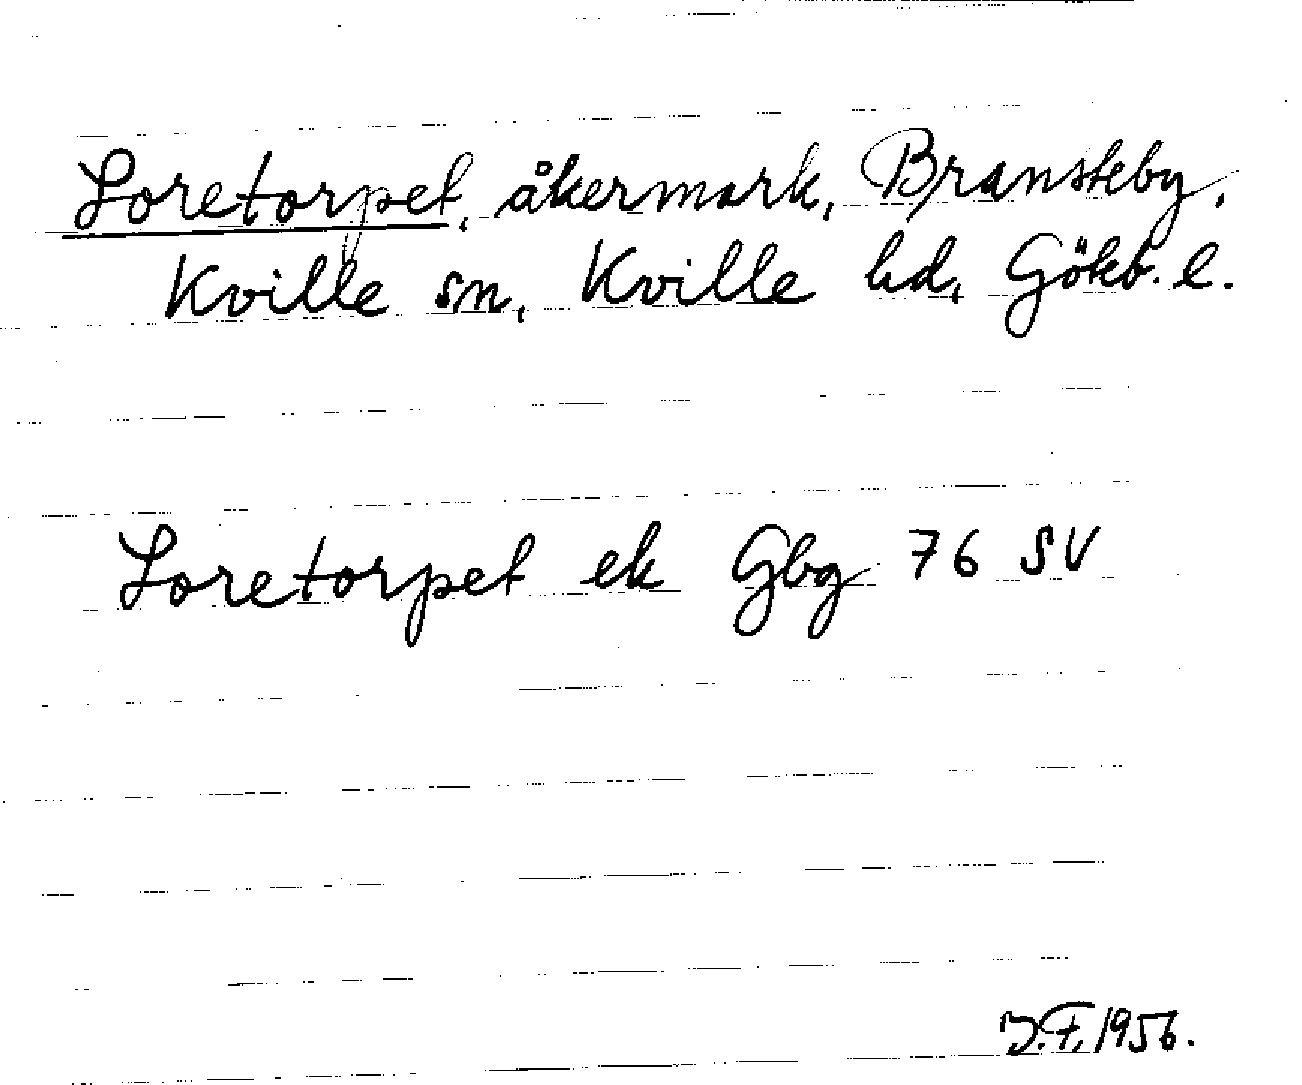 Loretorpet, åkermark, Bransteby,
Kville sn, Kville hd, Gökb. l.
Loretorpet ek Gbg 76 SV
J.F. 1956.